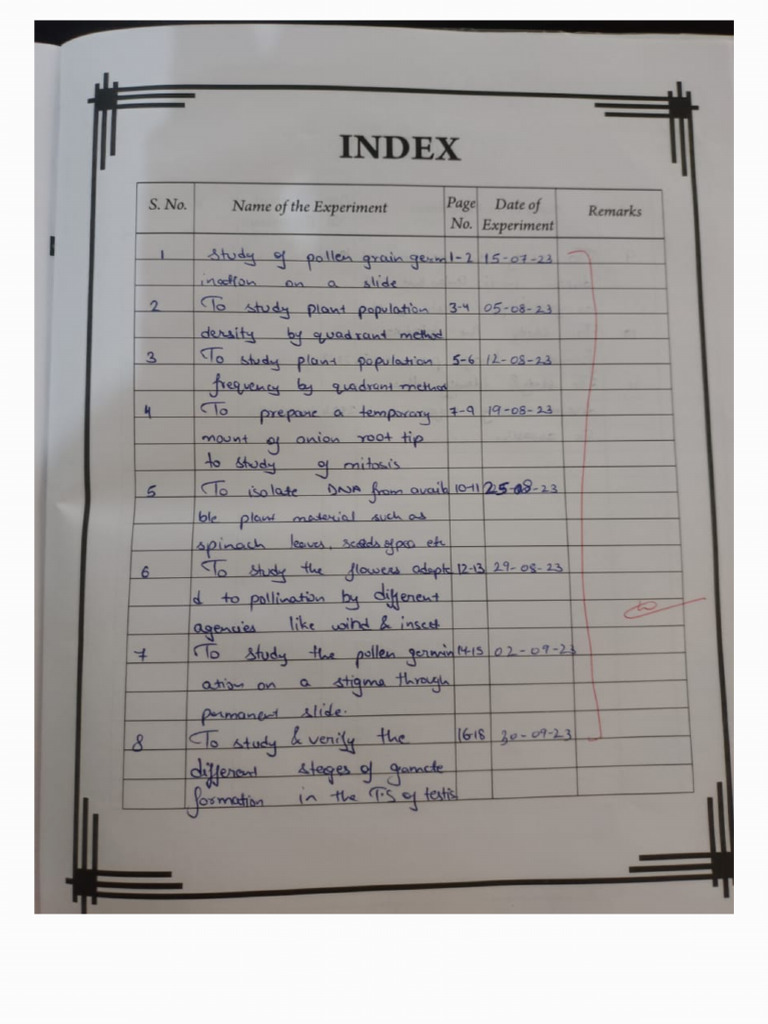 INDEX
S. No. Name of the Experiment Page No. Date of Experiment Remarks
1 Study of pollen grain germ 1-2 15-07-23
ination on a slide
2 To study plant population 3-4 05-08-23
density by quadrant method
3 To study plant population 5-6 12-08-23
frequency by quadrant method
4 To prepare a temporary 7-9 19-08-23
mount of onion root tip
to study of mitosis
5 To isolate DNA from availa 10-11 25-08-23
ble plant material such as
spinach leaves, seeds of pea etc
6 To study the flowers adapte 12-13 29-08-23
d to pollination by different
agencies like wind & insect
7 To study the pollen germin 14-15 02-09-23
ation on a stigma through
permanent slide.
8 To study & verify the 16-18 30-09-23
different steges of gamete
formation in the T.S of testis